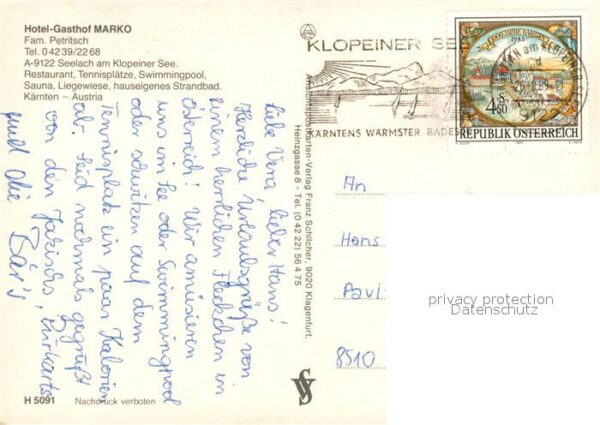 Hotel-Gasthof MARKO
Fam. Petritsch
Tel. 0 42 39/22 68
A-9122 Seelach am Klopeiner See.
Restaurant, Tennisplätze, Swimmingpool,
Sauna, Liegewiese, hauseigenes Strandbad.
Kärnten – Austria
Liebe Vera, lieber Hans!
Herzliche Urlaubsgrüße von
einem herrlichen Fleckchen in
Österreich! Wir amüsieren
uns im See oder Swimmingpool
oder schwitzen auf dem
Tennisplatz ein paar Kalorien
ab. Seid nochmals gegrüßt
von den Burkarts
und die Bär's
H 5091
Nachdruck verboten
Ansichtspostkarten-Verlag Franz Schilcher, 9020 Klagenfurt,
Heinzgasse 8 - Tel. (0 42 22) 56 4 75
KLOPEINER SEE
KÄRNTENS WÄRMSTER BADES
1000 JAHRE
1985
4.50
REPUBLIK ÖSTERREICH
AM KLOPEINER SEE
9122
An
Hans
Paul
8510
privacy protection
Datenschutz